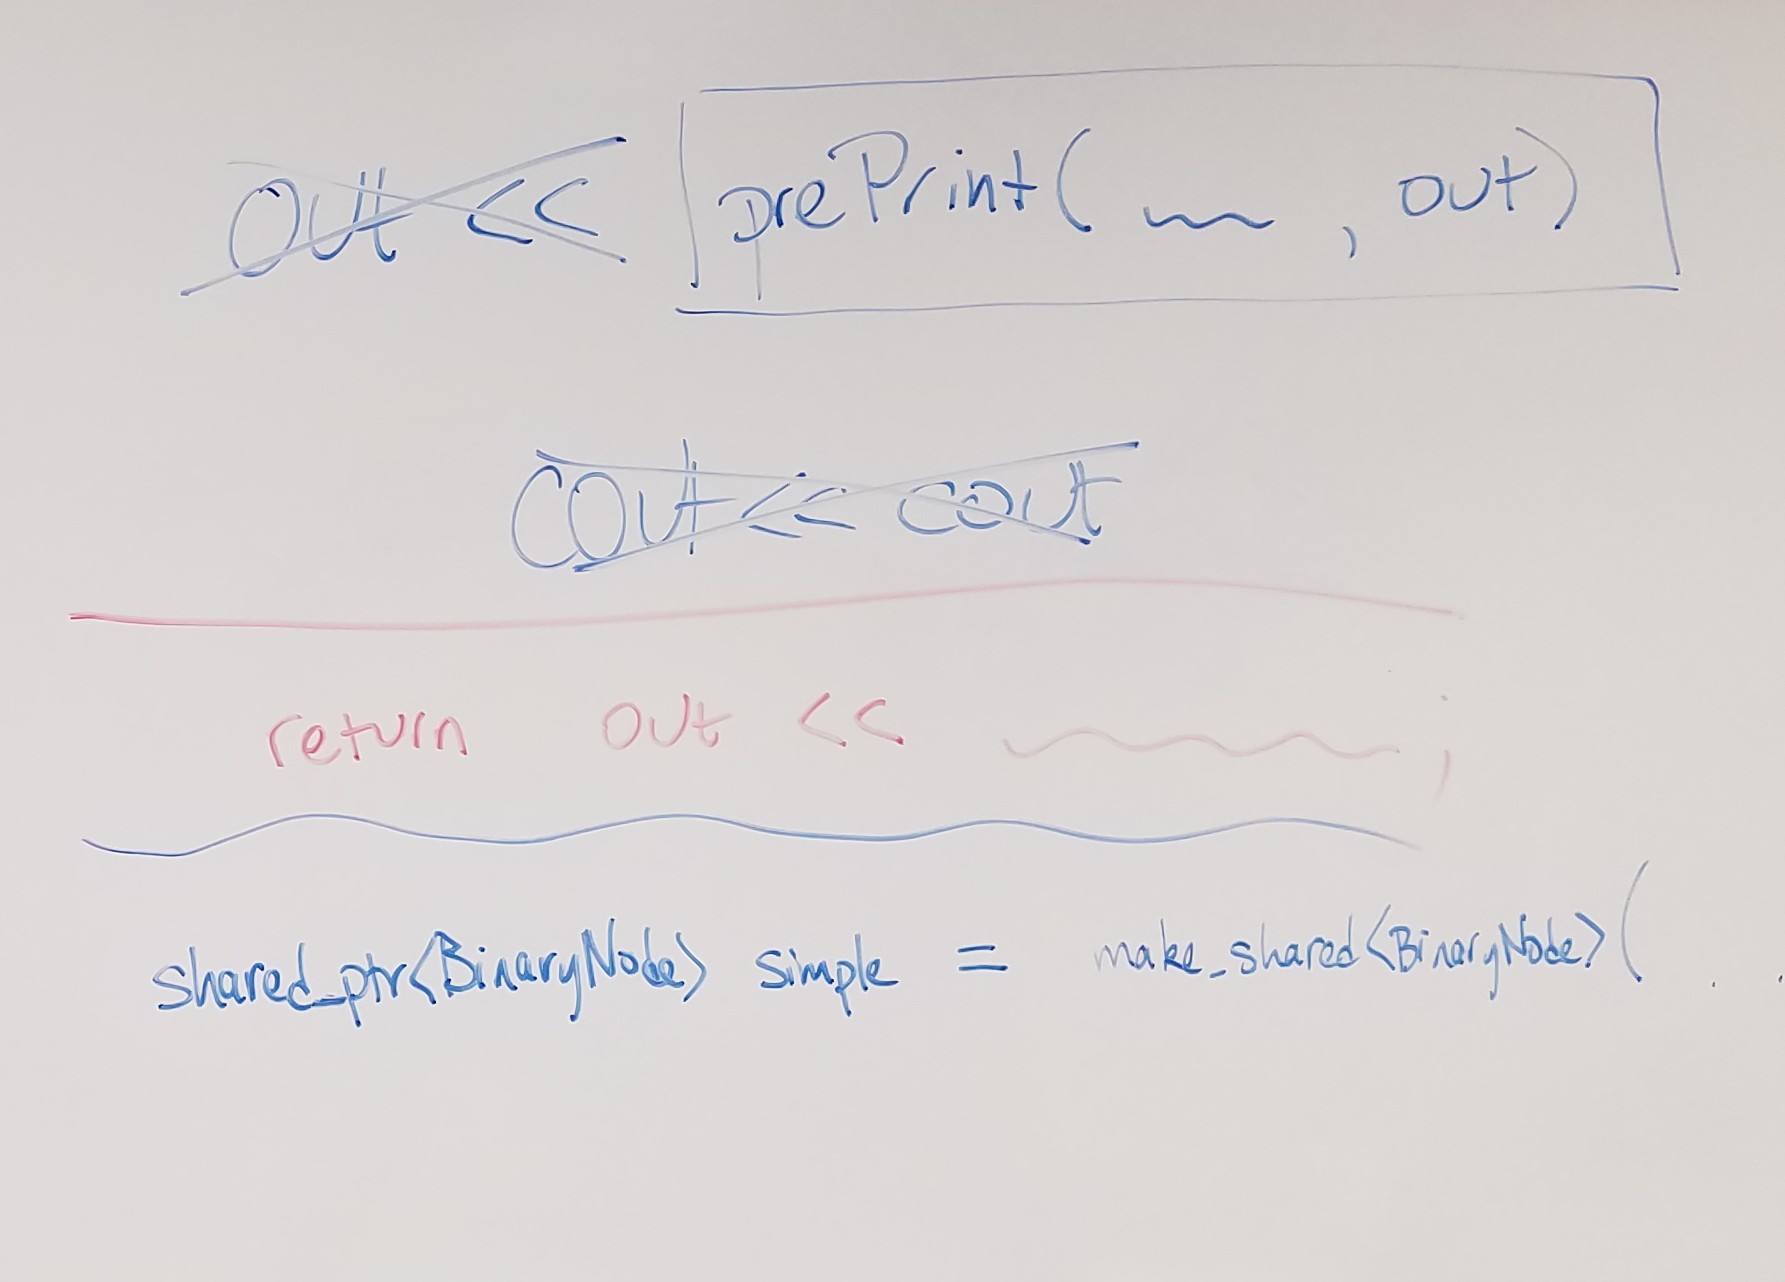 out << prePrint( , out)
cout << cout
return out << ;
shared_ptr<BinaryNode> simple = make_shared<BinaryNode>( . .